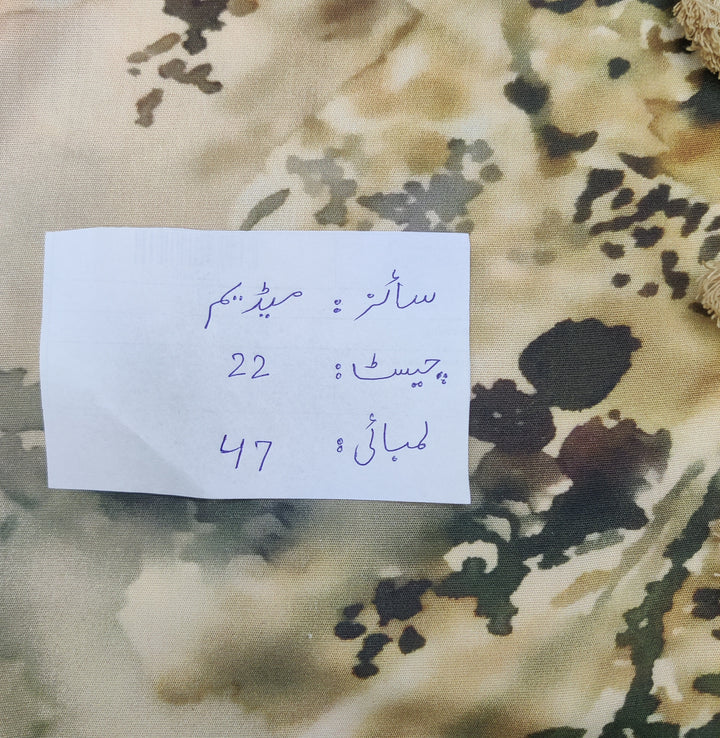 سائز: میڈیم
چیسٹ: 22
لمبائی: 47